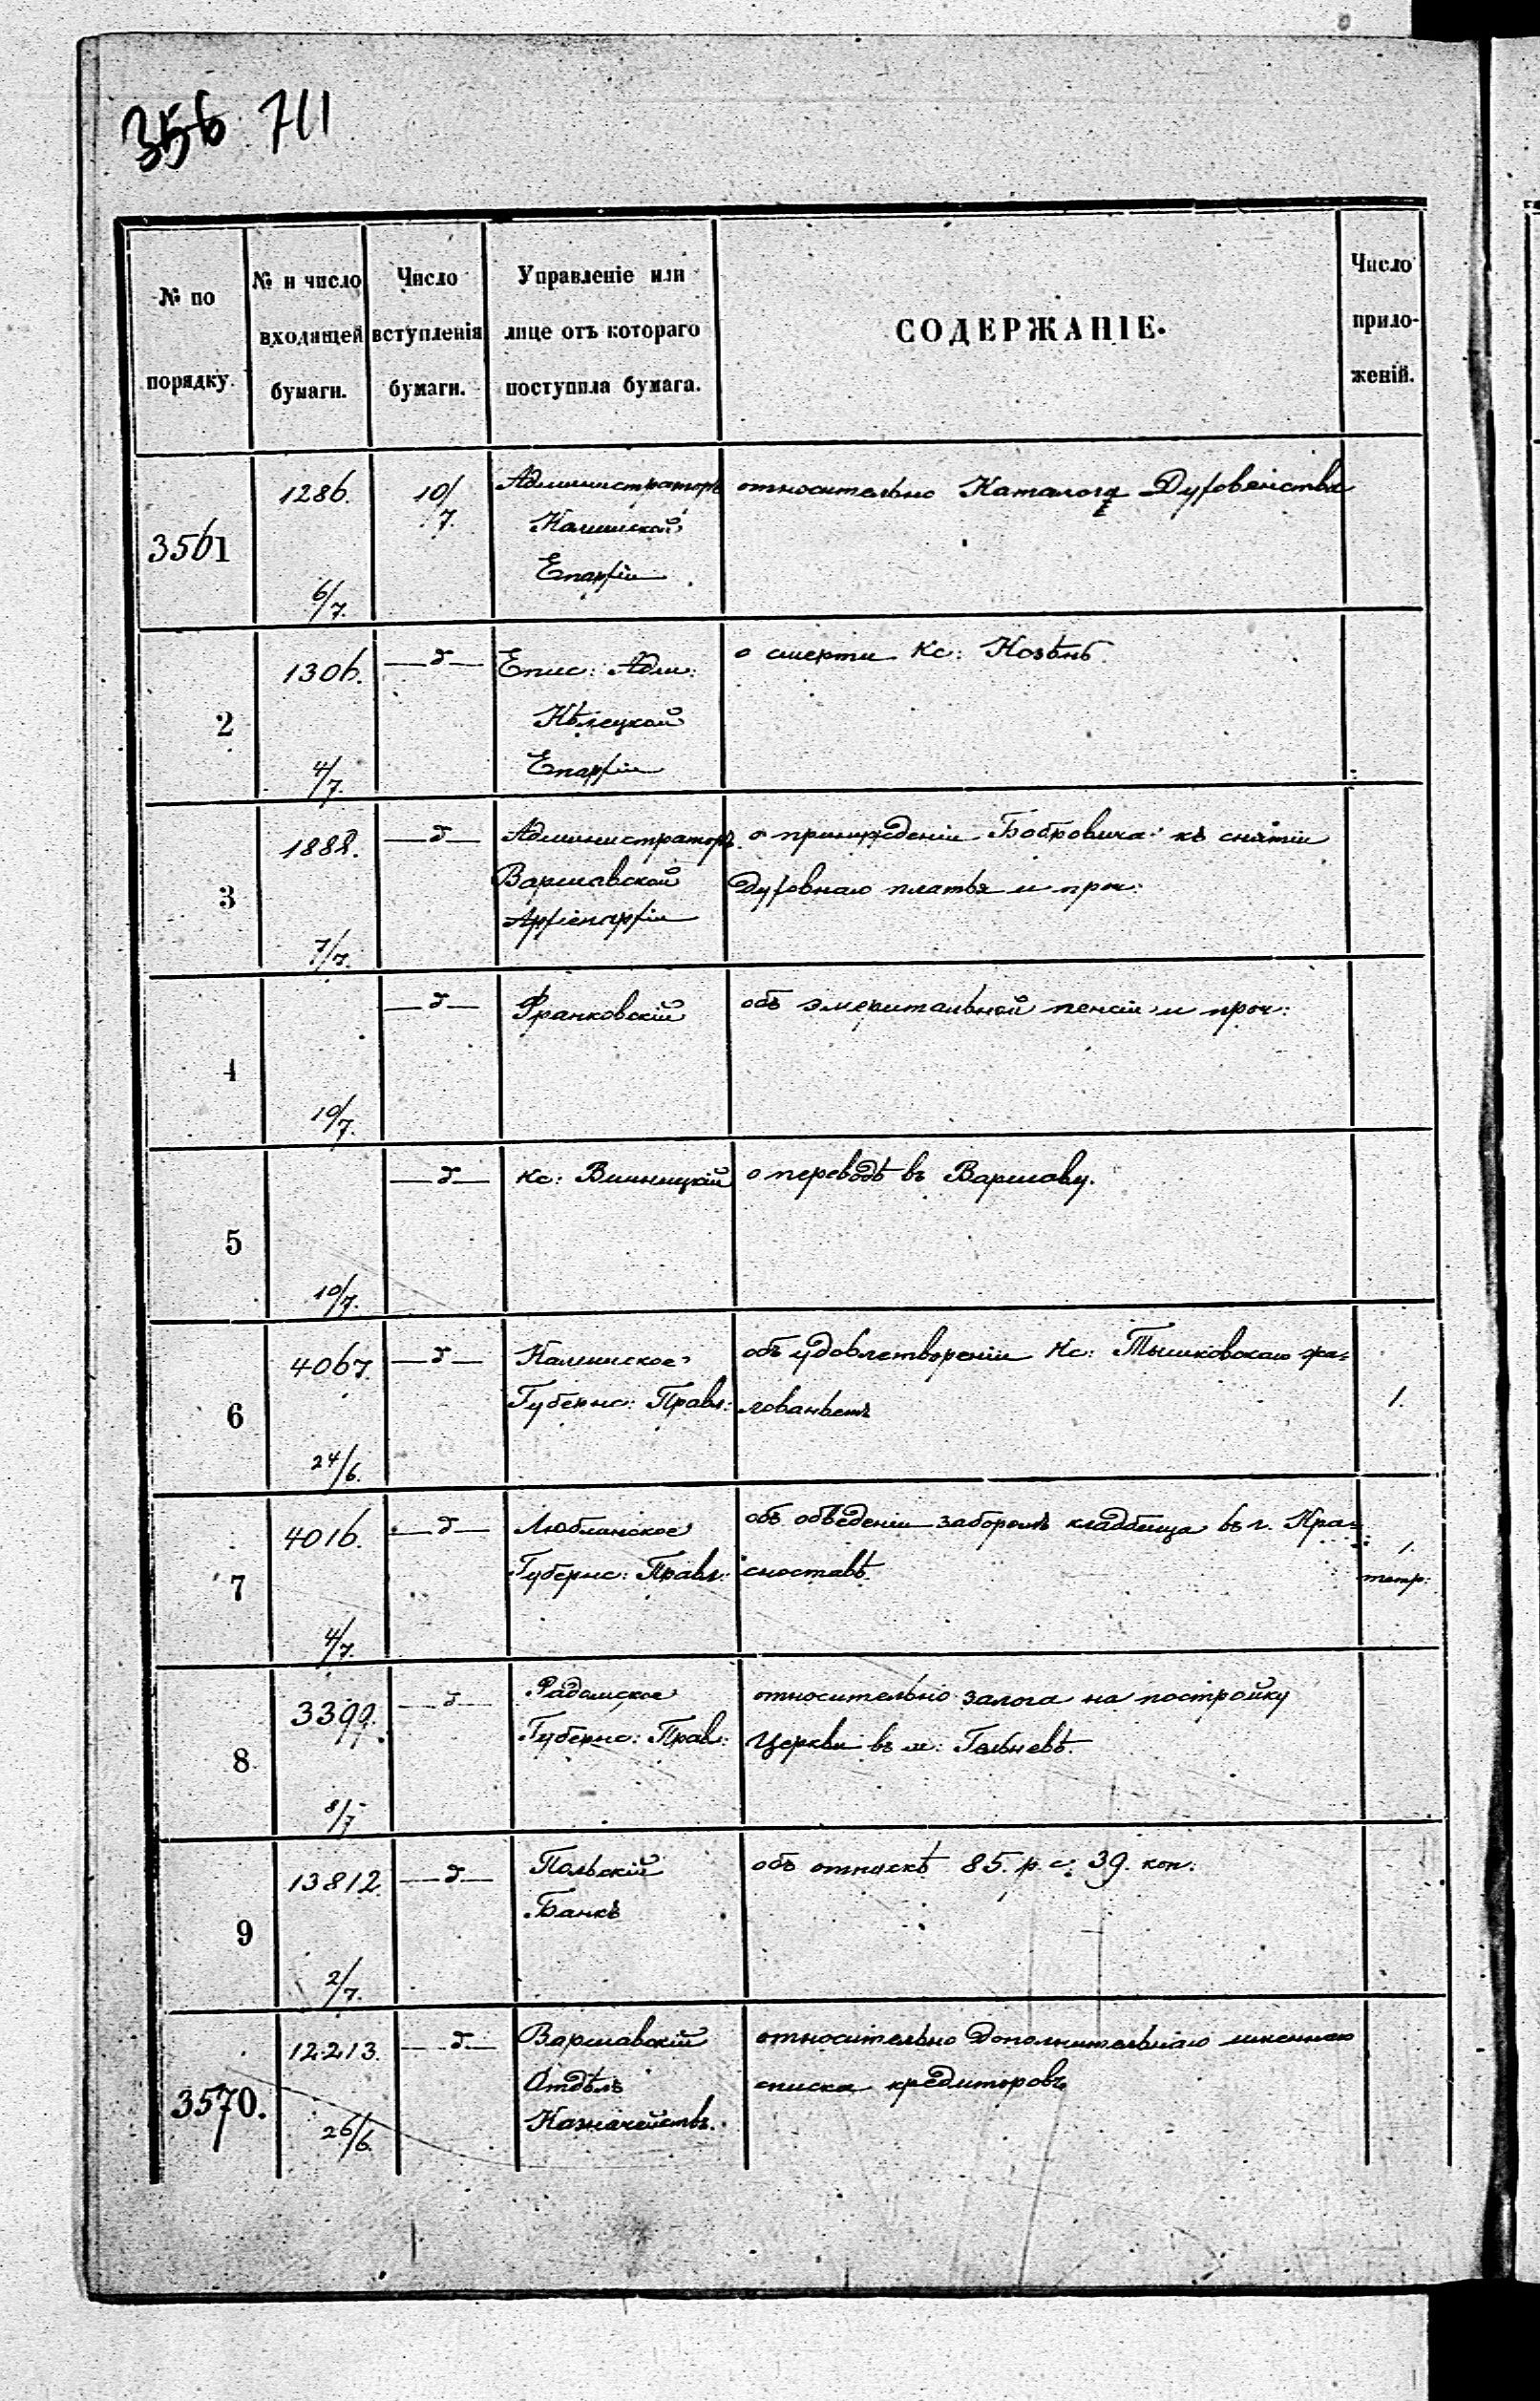 356 711
№ по порядку.
№ и число входящей бумаги.
Число вступленія бумаги.
Управленіе или лице отъ котораго поступила бумага.
СОДЕРЖАНІЕ.
Число приложеній.
3561
1286.
6/7.
10/7.
Администраторъ
Калишской
Епархіи
относительно Каталога Духовенства
2
1306.
4/7.
—д—
Епис: Адм:
Кѣлецкой
Епархіи
о смерти Кс: Козѣнѣ.
3
1888.
7/7.
—д—
Администраторъ
Варшавской
Архіепархіи
о принужденіи Бобровича къ снятіи
Духовнаго платья и проч:
4
10/7.
—д—
Франковскій
объ эмеритальной пенсіи и проч:
5
10/7.
—д—
Кс: Винницкій
о переводѣ въ Варшаву.
6
4067.
24/6.
—д—
Калишское
Губернс: Правл:
объ удовлетвореніи Кс: Тышковскаго жа=
лованьемъ
1.
7
4016.
4/7.
—д—
Люблинское
Губернс: Правл:
объ обведеніи заборомъ кладбища въ г. Кра=
сноставѣ.
1.
тетр:
8
3399.
8/7
—д—
Радомское
Губернс: Прав:
относительно залога на постройку
Церкви въ м: Гельневѣ.
9
13812
2/7.
—д—
Польскій
Банкъ
объ отпискѣ 85. р. с. 39. коп.
3570.
12213.
26/6.
—д—
Варшавскій
Отдѣлъ
Казначействъ.
относительно дополнительнаго именнаго
списка кредиторовъ